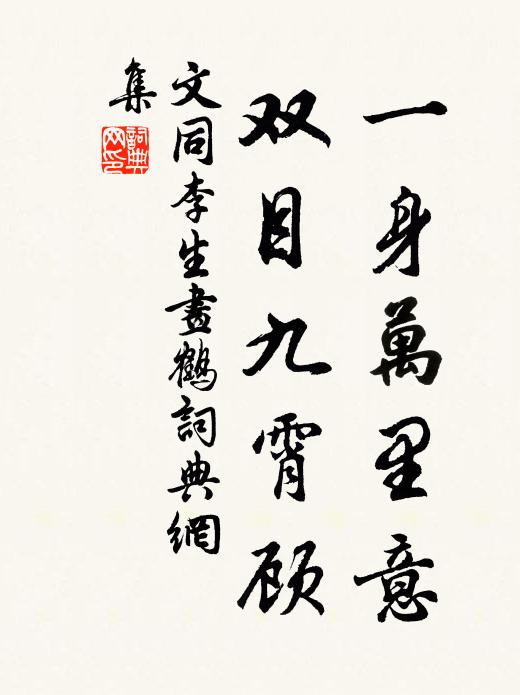 一身萬里意
双目九霄顾
文同李生畫鶴詞典網
集
詞典網印